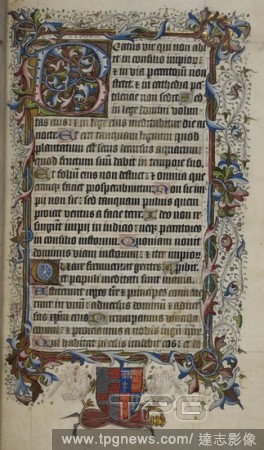 Beatus vir qui non abi
it in consilio impior
& in via peccatorum non
stetit: & in cathedra pe
stilencie non sedit Sed
in lege domini volun
tas eius: & in lege eius meditabitur die ac
nocte Et erit tanquam lignum quod
plantatum est secus decursus aquarum
quod fructum suum dabit in tempore suo.
Et folium eius non defluet: & omnia que
cumque faciet prosperabuntur Non sic im
pii non sic: sed tanquam pulvis quem
proicit ventus a facie terre. Ideo non re
surgunt impii in iudicio: neqz peccatores
in consilio iustorum. Quoniam novit
dominus viam iustorum: & iter impior
Quare fremuerunt gentes: peribit
et populi meditati sunt inania.
Astiterunt reges terre & principes convene
runt in unum: adversus dominum & adversus
eius. Dirumpamus vincula
eorum: & proiciamus a nobis iugum
Qui habitat in celis irridebit eos: &
TPG
www.tpgnews.com/ 達志影像